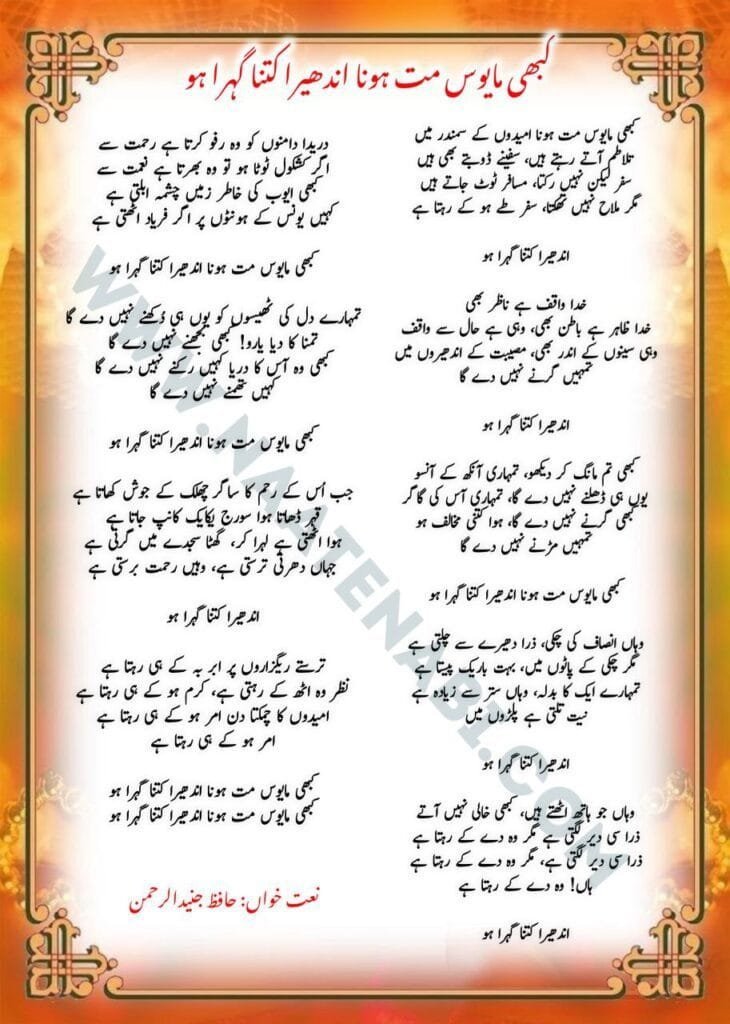 کبھی مایوس مت ہونا اندھیرا کتنا گہرا ہو
کبھی مایوس مت ہونا امیدوں کے سمندر میں
تلاطم آتے رہتے ہیں، سفینے ڈوبتے بھی ہیں
سفر لیکن نہیں رکتا، مسافر ٹوٹ جاتے ہیں
مگر ملاح نہیں تھکتا، سفر طے ہو کے رہتا ہے
اندھیرا کتنا گہرا ہو
خدا واقف ہے ناظر بھی
خدا ظاہر ہے باطن بھی، وہی ہے حال سے واقف
وہی سینوں کے اندر بھی، مصیبت کے اندھیروں میں
تمہیں گرنے نہیں دے گا
اندھیرا کتنا گہرا ہو
کبھی تم مانگ کر دیکھو، تمہاری آنکھ کے آنسو
یوں ہی ڈھلنے نہیں دے گا، تمہاری آس کی گاگر
کبھی گرنے نہیں دے گا، ہوا کتنی مخالف ہو
تمہیں مڑنے نہیں دے گا
کبھی مایوس مت ہونا اندھیرا کتنا گہرا ہو
وہاں انصاف کی چکی، ذرا دھیرے سے چلتی ہے
مگر چکی کے پاٹوں میں، بہت باریک پیستا ہے
تمہارے ایک کا بدلہ، وہاں ستر سے زیادہ ہے
نیت تلتی ہے پلڑوں میں
اندھیرا کتنا گہرا ہو
وہاں جو ہاتھ اٹھتے ہیں، کبھی خالی نہیں آتے
ذرا سی دیر لگتی ہے مگر وہ دے کے رہتا ہے
ذرا سی دیر لگتی ہے، مگر وہ دے کے رہتا ہے
ہاں! وہ دے کے رہتا ہے
اندھیرا کتنا گہرا ہو
دریدا دامنوں کو وہ رفو کرتا ہے رحمت سے
اگر کشکول ٹوٹا ہو تو وہ بھرتا ہے نعمت سے
کبھی ایوب کی خاطر زمیں چشمہ ابلتی ہے
کہیں یونس کے ہونٹوں پر اگر فریاد اٹھتی ہے
کبھی مایوس مت ہونا اندھیرا کتنا گہرا ہو
تمہارے دل کی ٹھیسوں کو یوں ہی دُکھنے نہیں دے گا
تمنا کا دیا یارو! کبھی بجھنے نہیں دے گا
کبھی وہ آس کا دریا کہیں رکنے نہیں دے گا
کہیں تھمنے نہیں دے گا
کبھی مایوس مت ہونا اندھیرا کتنا گہرا ہو
جب اُس کے رحم کا ساگر چھلک کے جوش کھاتا ہے
قہر ڈھاتا ہوا سورج یکایک کانپ جاتا ہے
ہوا اٹھتی ہے لہرا کر، گھٹا سجدے میں گرتی ہے
جہاں دھرتی ترستی ہے، وہیں رحمت برستی ہے
اندھیرا کتنا گہرا ہو
ترستے ریگزاروں پر ابر بہ کے ہی رہتا ہے
نظر وہ اٹھ کے رہتی ہے، کرم ہو کے ہی رہتا ہے
امیدوں کا چمکتا دن امر ہو کے ہی رہتا ہے
امر ہو کے ہی رہتا ہے
کبھی مایوس مت ہونا اندھیرا کتنا گہرا ہو
کبھی مایوس مت ہونا اندھیرا کتنا گہرا ہو
نعت خواں: حافظ جنیدالرحمن
WWW.NAATENABI.COM